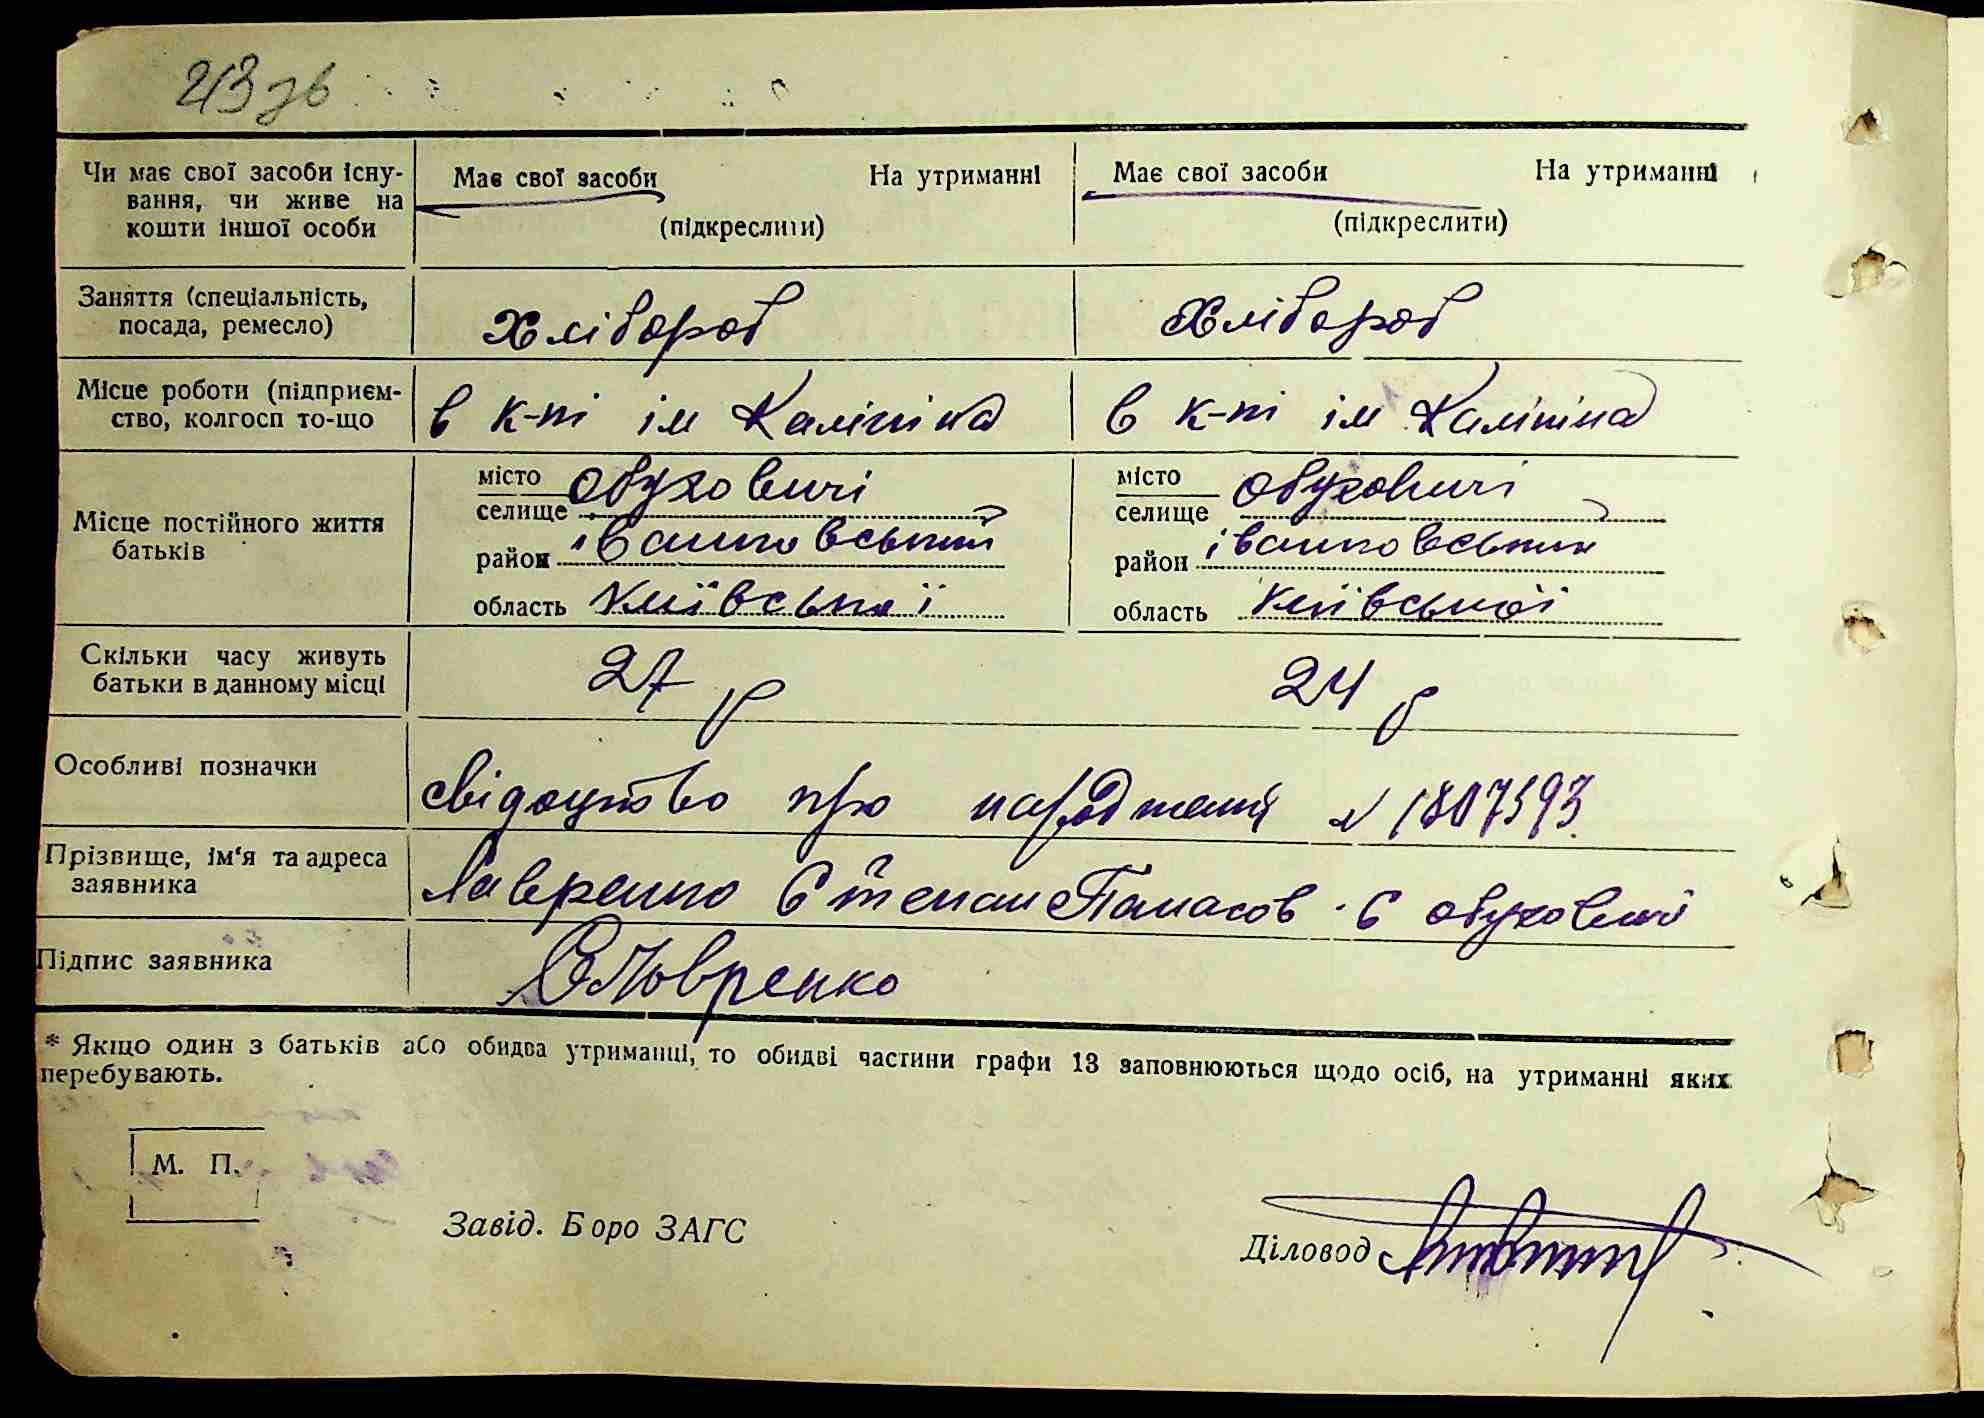 213 зв
Чи має свої засоби існу-
вання, чи живе на
кошти іншої особи
Має свої засоби На утриманні
(підкреслити)
Має свої засоби На утриманні
(підкреслити)
Заняття (спеціальність,
посада, ремесло)
хлібороб
хлібороб
Місце роботи (підприєм-
ство, колгосп то-що
в к-пі ім Калініна
в к-пі ім Калініна
Місце постійного життя
батьків
місто
селище обуховичі
район іванковський
область київської
місто
селище обуховичі
район іванковський
область київської
Скільки часу живуть
батьки в данному місці
27 р
24 р
Особливі позначки
свідоцтво про народження №
Прізвище, ім'я та адреса
заявника
Лавренко Степан Панасов. с обуховичі
Підпис заявника
Лавренко
* Якщо один з батьків або обидва утриманці, то обидві частини графи 13 заповнюються щодо осіб, на утриманні яких
перебувають.
М. П.
Завід. Бюро ЗАГС
Діловод